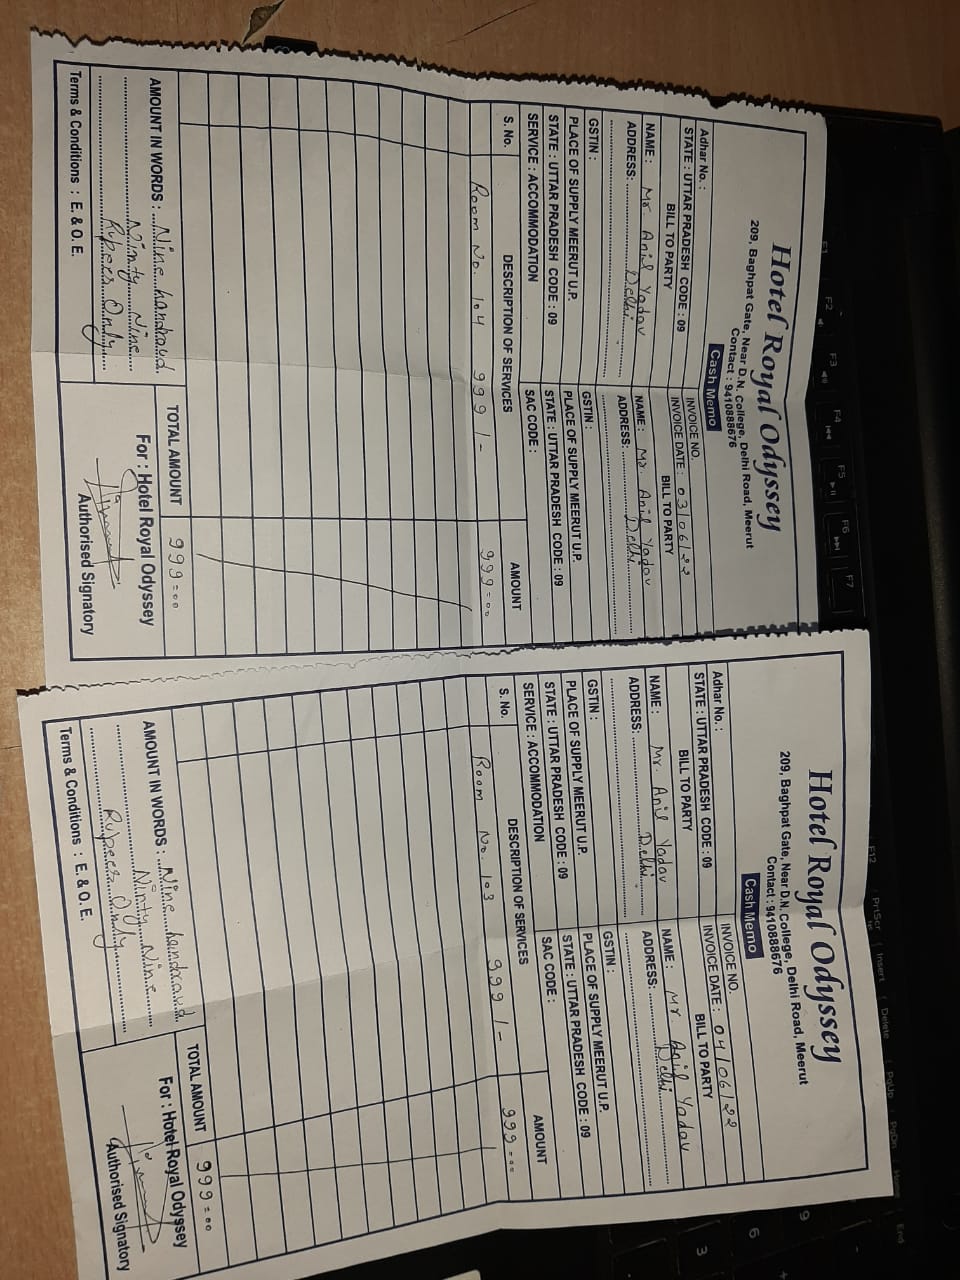 Hotel Royal Odyssey
209, Baghpat Gate, Near D.N. College, Delhi Road, Meerut
Contact : 9410888676
Cash Memo
Adhar No. :
INVOICE NO.
STATE : UTTAR PRADESH CODE : 09
INVOICE DATE : 03/06/22
BILL TO PARTY
BILL TO PARTY
NAME : Mr. Anil Yadav
NAME : Mr. Anil Yadav
ADDRESS: Delhi
ADDRESS: Delhi
GSTIN :
GSTIN :
PLACE OF SUPPLY MEERUT U.P.
PLACE OF SUPPLY MEERUT U.P.
STATE : UTTAR PRADESH CODE : 09
STATE : UTTAR PRADESH CODE : 09
SERVICE : ACCOMMODATION
SAC CODE :
S. No. DESCRIPTION OF SERVICES AMOUNT
Room No. 104 999/- 999=00
TOTAL AMOUNT 999=00
AMOUNT IN WORDS : Nine handraud
Ninty Nine
Rupees Only
For : Hotel Royal Odyssey
Authorised Signatory
Terms & Conditions : E. & O. E.
Hotel Royal Odyssey
209, Baghpat Gate, Near D.N. College, Delhi Road, Meerut
Contact : 9410888676
Cash Memo
Adhar No. :
INVOICE NO.
STATE : UTTAR PRADESH CODE : 09
INVOICE DATE : 04/06/22
BILL TO PARTY
BILL TO PARTY
NAME : Mr. Anil Yadav
NAME : Mr. Anil Yadav
ADDRESS: Delhi
ADDRESS: Delhi
GSTIN :
GSTIN :
PLACE OF SUPPLY MEERUT U.P.
PLACE OF SUPPLY MEERUT U.P.
STATE : UTTAR PRADESH CODE : 09
STATE : UTTAR PRADESH CODE : 09
SERVICE : ACCOMMODATION
SAC CODE :
S. No. DESCRIPTION OF SERVICES AMOUNT
Room No. 103 999/- 999=00
TOTAL AMOUNT 999=00
AMOUNT IN WORDS : Nine handraud
Ninty Nine
Rupees Only
For : Hotel Royal Odyssey
Authorised Signatory
Terms & Conditions : E. & O. E.
F1
F2
F3
F4
F5
F6
F7
F12
PrtScr
Insert
Delete
PgUp
PgDn
Home
End
9
6
3